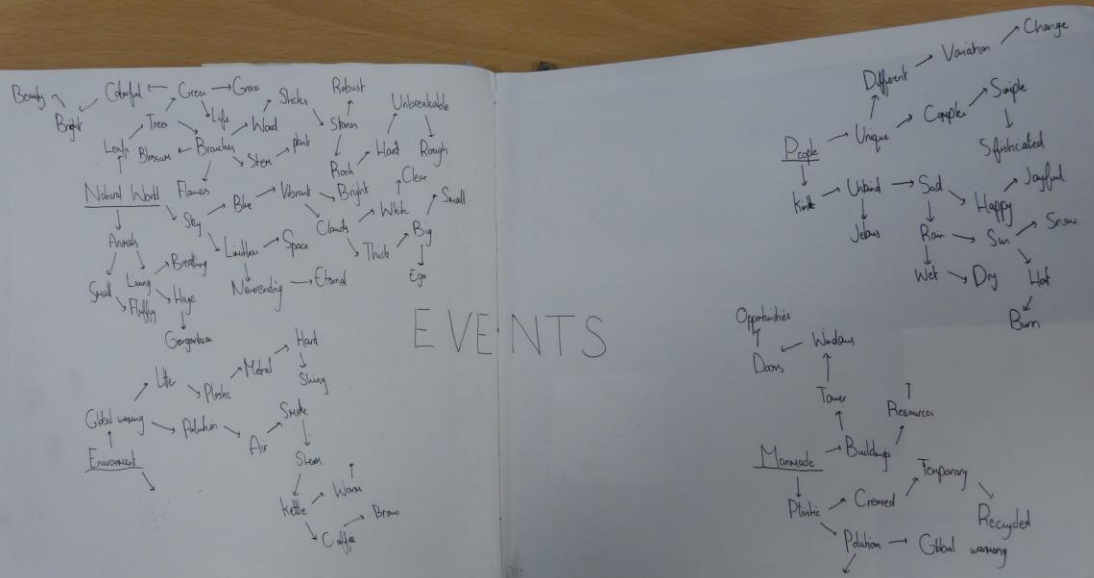 Beauty
Colorful
Green
Grass
Bright
Life
Sticks
Robust
Unbreakable
Leafs
Tree
Wood
Stones
Blossum
Branches
Stem
plant
Rock
Hard
Rough
Natural World
Flowers
Blue
Vibrant
Bright
Clear
Sky
Clouds
White
Big
Small
Animals
Limitless
Space
Thick
Ego
Small
Living
Breathing
Neverending
Eternal
Fluffy
Huge
Gorgantuan
EVENTS
Global warming
Plastic
Metal
Hard
Shiny
Polution
Air
Smoke
Enviroment
Steam
Kettle
Warm
Coffee
Brown
People
Unique
Different
Variation
Change
Complex
Simple
Sffisticated
Unkind
Sad
Happy
Joyful
Jelous
Rain
Sun
Snow
Wet
Dry
Hot
Burn
Oppotunities
Doors
Windows
Tower
Resources
Manmade
Buildings
Plastic
Created
Temporary
Recycled
Polution
Global warming